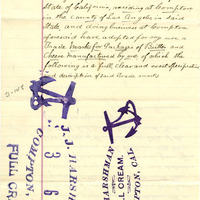 State of California, residing at Compton
in the county of Los Angeles in said
State, and doing business at Compton
aforesaid have adopted for my use a
Trade Marks for Packages of Butter and
Cheese manufactured by me of which the
following is a full, clear and exact specification
and description of said trade marks
J. J. HARSHMAN
COMPTON,
FULL CR
3 6
HARSHMAN
LL CREAM.
MPTON, CAL